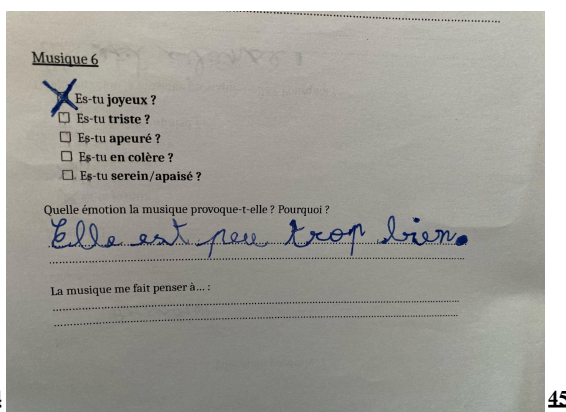 Musique 6
Es-tu joyeux ?
Es-tu triste ?
Es-tu apeuré ?
Es-tu en colère ?
Es-tu serein/apaisé ?
Quelle émotion la musique provoque-t-elle ? Pourquoi ?
Elle est peu trop bien.
La musique me fait penser à... :
45